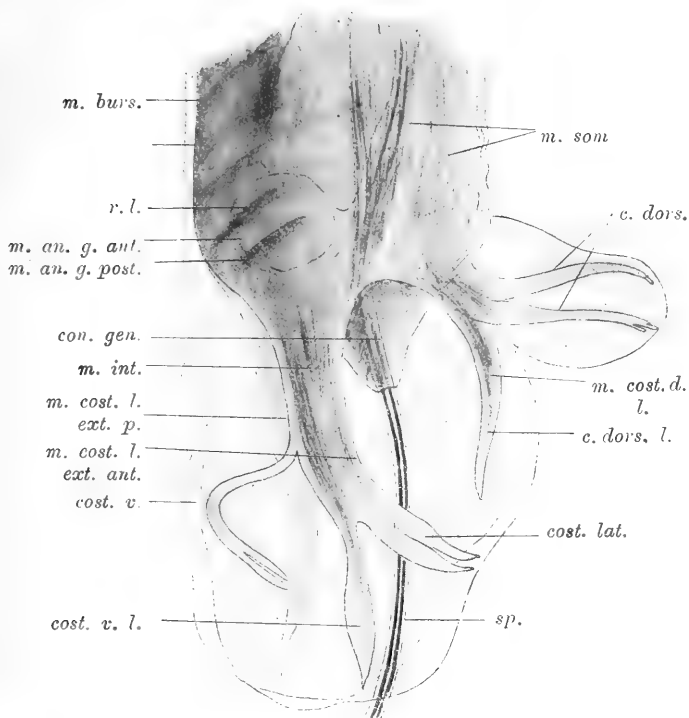 m. burs.
r. l.
m. an. g. ant.
m. an. g. post.
con. gen.
m. int.
m. cost. l.
ext. p.
m. cost. l.
ext. ant.
cost. v.
cost. v. l.
m. som
c. dors.
m. cost. d.
l.
c. dors. l.
cost. lat.
sp.